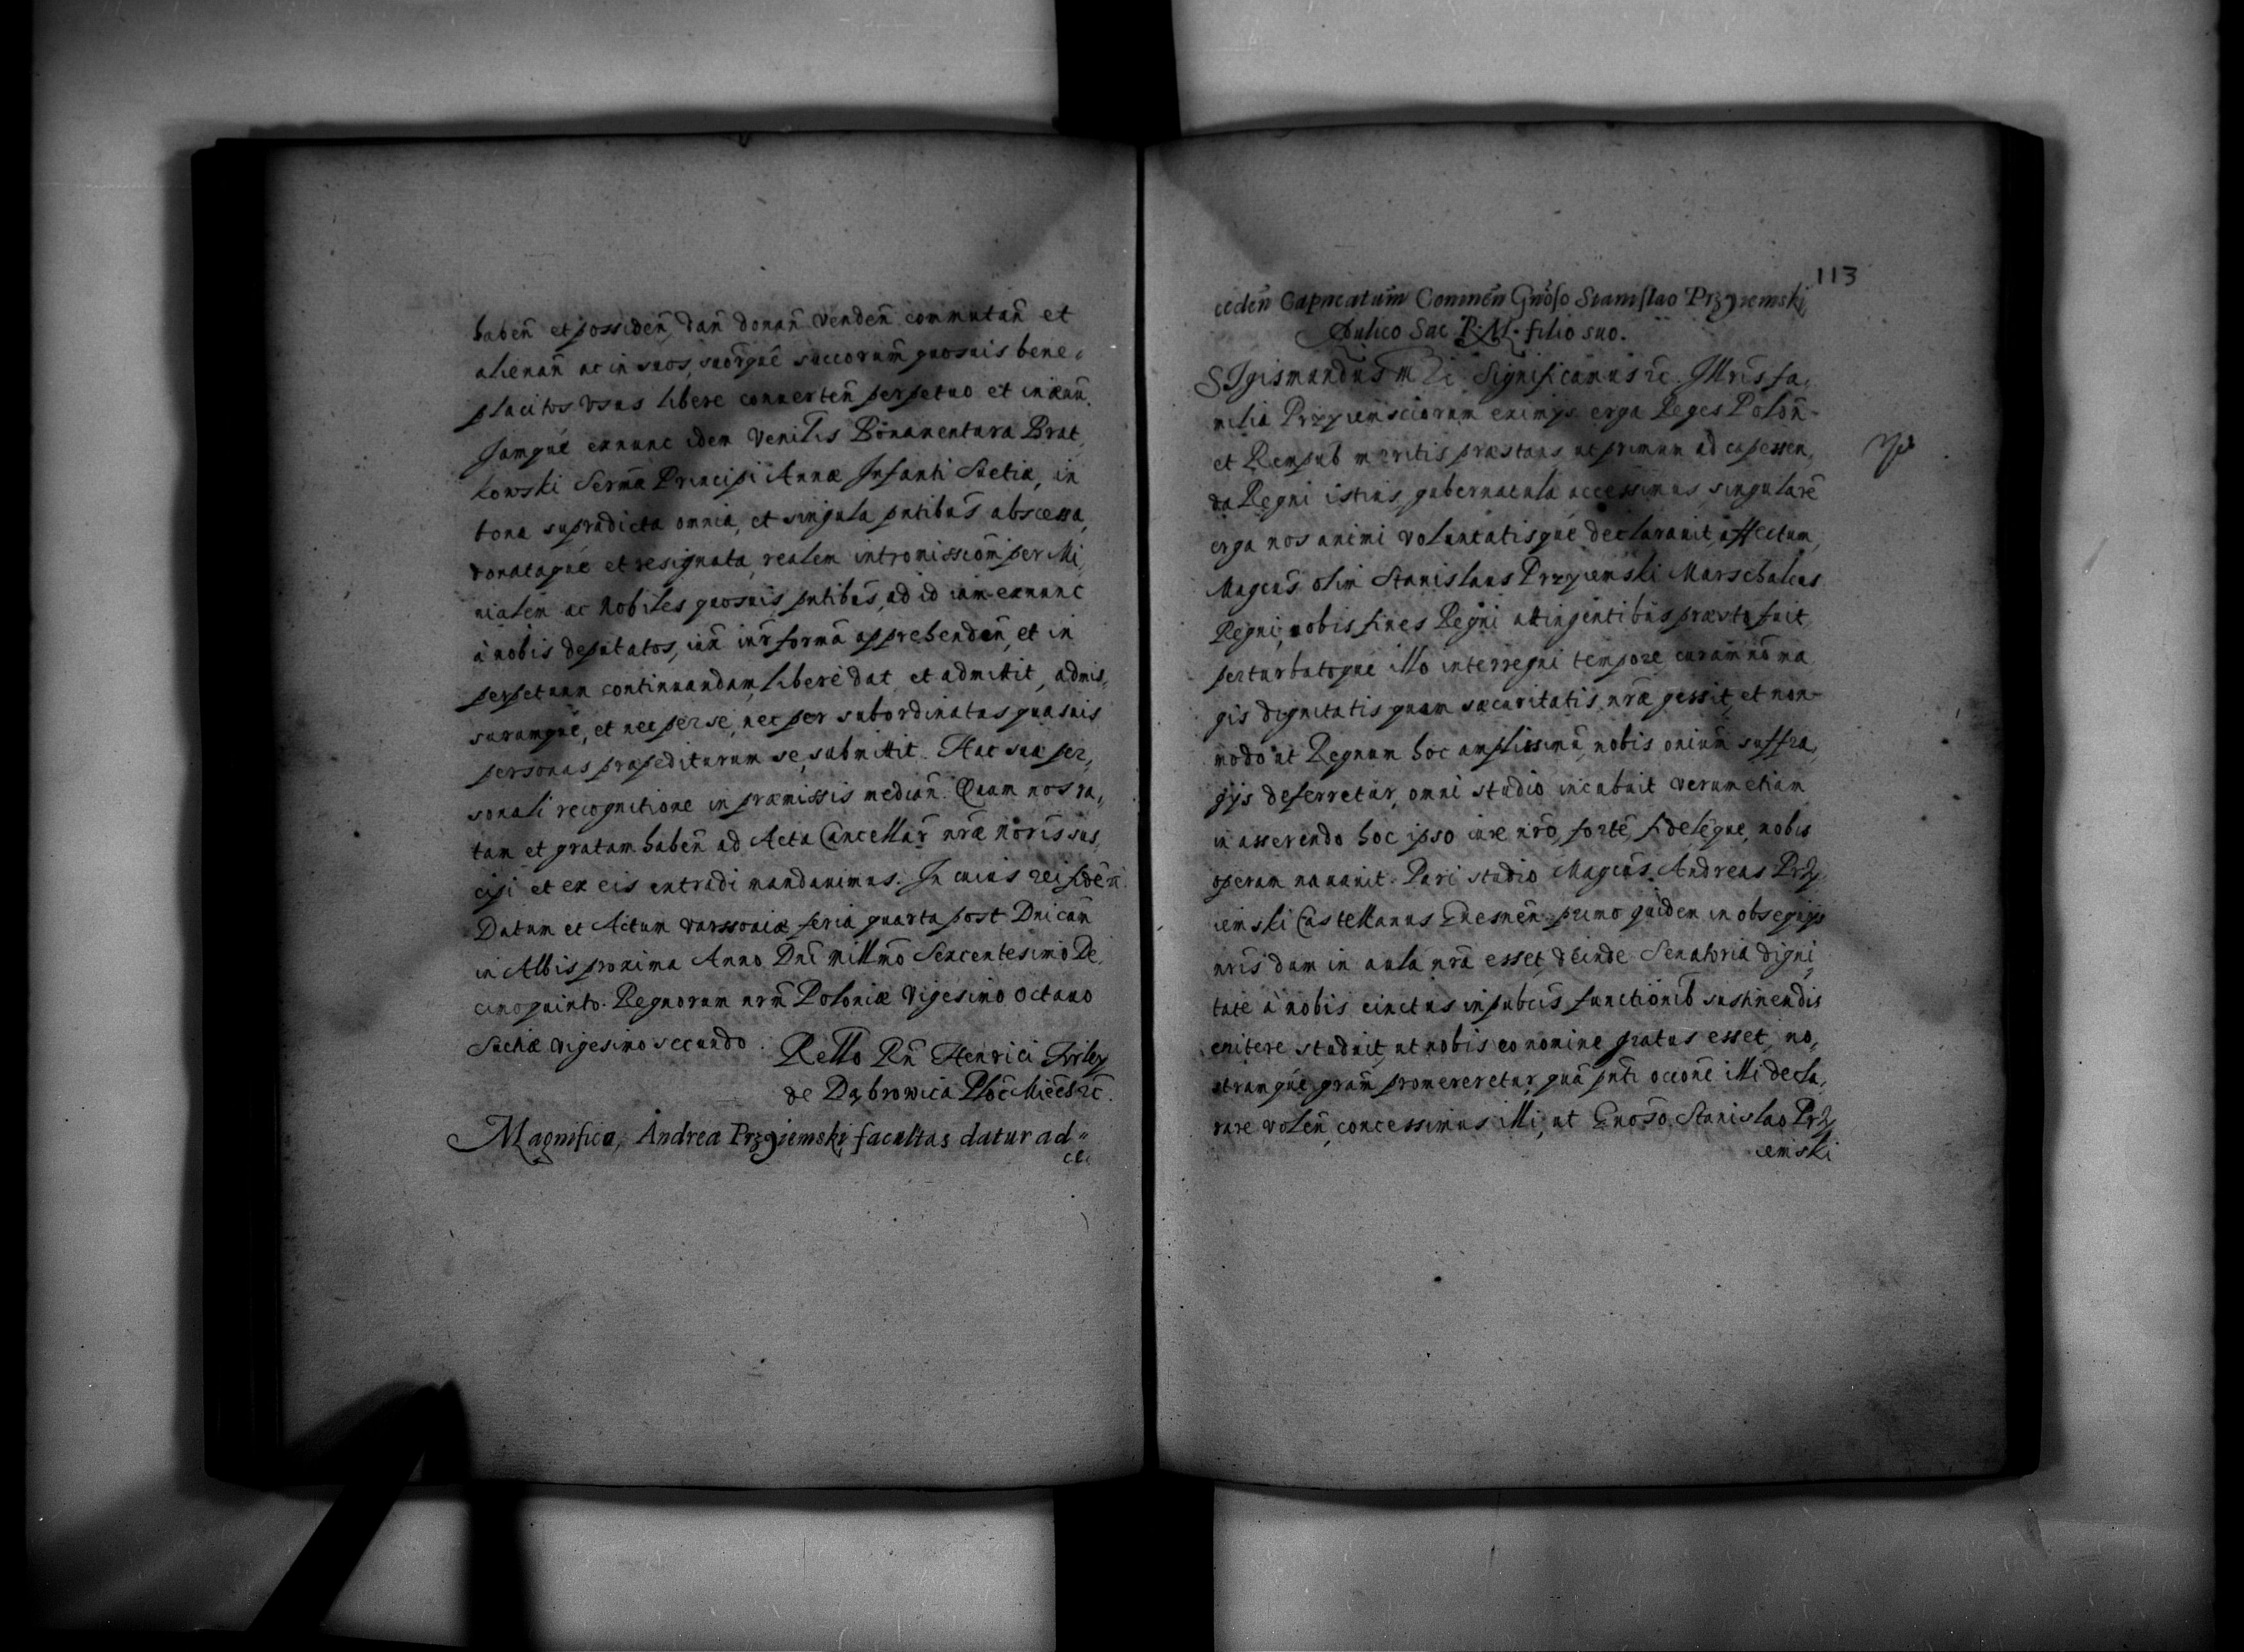 haben̄ et possiden̄, dan̄ donan̄ venden̄ commutan̄ et
alienan̄ ac in suos, suōrque succorum quosuis bene,
placitos vsus libere conuerten̄ perpetuo et in æuū.
Jamque exnunc idem Venīlis Bonauentura Brat,
kowski Serma Principi Annæ Infanti Suetiæ, in
bona supradicta omnia, et singula pntibus abscessa,
donataque et resignata, realem intromissiōm per Mi,
nialem ac Nobiles quosuis pntibus, ad id iam exnunc
à nobis deputatos, iux̄ iur̄ formā apprehenden̄, et in
perpetuum continuandam, liberè dat, et admittit, admis,
surumque, et nec per se, nec per subordinatas quasuis
personas præpediturum se, submittit. Hac sua per,
sonali recognitione in præmissis median̄. Quam nos ra,
tam et gratam haben̄ ad Acta Cancellar̄ nræ Noris sus,
cipi et ex eis extradi mandauimus. In cuius rei fidem̄.
Datum et Actum Varssouiæ feria quarta post Dnicam̄
in Albis proxima Anno Dni Millmo Sexcentesimo De,
cimoquinto. Regnorum nrm̄ Poloniæ Vigesimo octauo
Suetiæ vigesimo secundo.
Rello Rn̄ Henrici Firley
de Dąbrowica Ploc̄
Magnifico, Andreæ Przyiemski facultas datur ad"
ce.
113
ceden̄ Capneatum̄ Connen̄ Gnoso Stanislao Przyiemski
Aulico Sac R. M. filio suo.
SIgismundus Significamus ꝛc. Illris fa,
milia Przyiemsciorum eximijs erga Reges Polon̄
et Rempub meritis præstans, ut primum ad capessen,
da Regni istius gubernacula accessimus, singularē
erga nos animi voluntatisque declarauit affectum,
Magcus olim Stanislaus Przyiemski Marschalcus
Regni, nobis fines Regni attingentibus præsto fuit,
perturbatoque illo interregni tempore curam nō ma
gis dignitatis quam sæcuritatis nræ gessit, et non
modo ut Regnum hoc amplissimū, nobis oniūm suffra,
gijs deferretur, omni studio incubuit verum etiam
in asserendo hoc ipso iure nrō, fortē, fidelēque, nobis
operam nauauit. Pari studio Magcus Andreas Prz,
iemski Castellanus Gnesnen̄ primo quidem in obsequijs
nris dum in aula nra esset, deinde Senatoria digni,
tate à nobis cinctus in pubcis functionib sustinendis
enitere studuit, ut nobis eo nomine gratus esset, no,
stramque gram promereretur, quā pnti occone illi decla,
rare volen̄, concessimus illi, ut Gnoso Stanislao Prz,
iemski